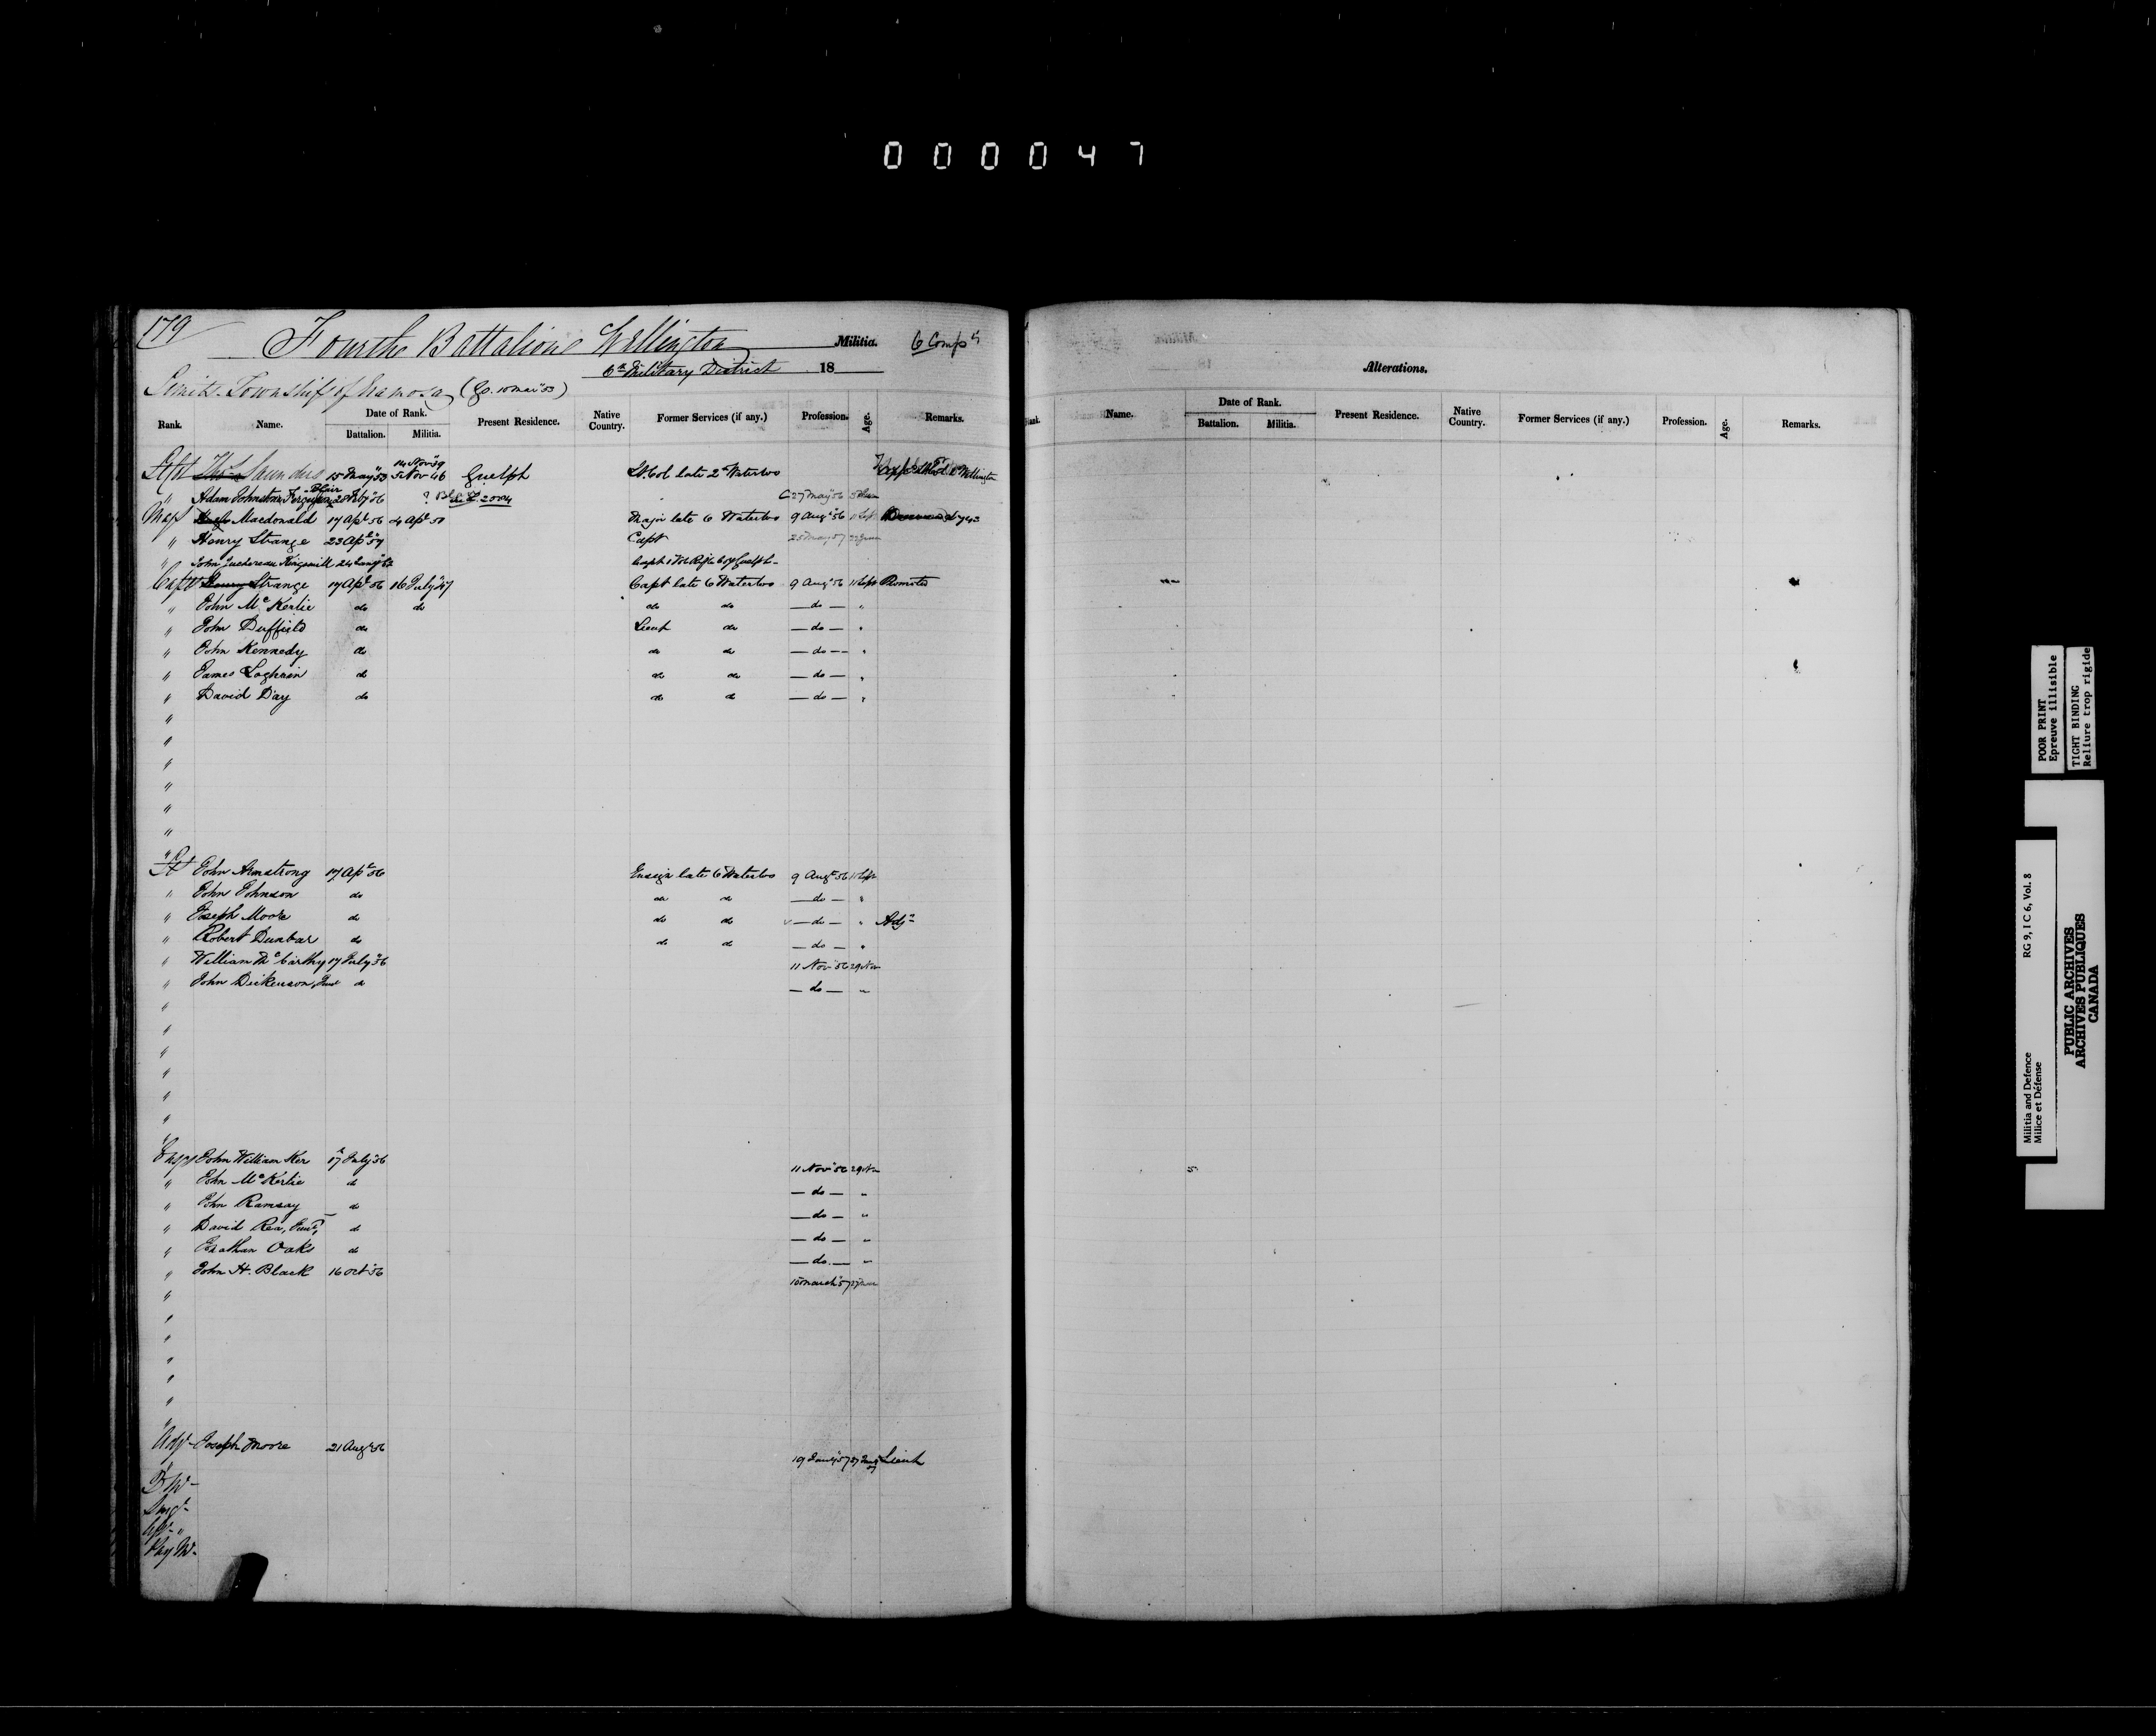 000047
179
Fourth Battalion Wellington Militia. 6 Comps
6th Military District 18
Limits Township of Eramosa (Go. 10 Mar 53)
Rank. Name. Date of Rank. Battalion. Militia. Present Residence. Native Country. Former Services (if any.) Profession. Age. Remarks.
14 Nov 39
Thos Saunders 15 May 53 5 Nov 46 Guelph Lt Col late 2 Waterloo
" Adam Johnston Fergusson Blair 28 Feby 56 27 May 56
Maj Macdonald 17 Apl 56 4 Apl 51 Major late 6 Waterloo 9 Augt 56 11 Sept
" Henry Strange 23 Apl 57 Capt 25 May 57
" John Juchereau Kingsmill
Capt Henry Strange 17 Apl 56 16 July 47 Capt late 6 Waterloo 9 Augt 56 11 Sept Promoted
" John McKerlie do do do do —do— "
" John Duffield do Lieut do —do— "
" John Kennedy do do do —do— "
" James Loghrin do do do —do— "
" David Day do do do —do— "
"
"
"
"
"
"
"
Lt John Armstrong 17 Apl 56 Ensign late 6 Waterloo 9 Augt 56 11 Sept
" John Johnson do do do —do— "
" Joseph Moore do do do —do— " Adjt
" Robert Dunbar do do do —do— "
" William McCarthy 17 July 56 11 Nov 56 29 Nov
" John Dickenson, Junr do —do— "
"
"
"
"
"
"
"
Ensgn John William Ker 17 July 56 11 Nov 56 29 Nov
" John McKerlie do —do— "
" John Ramsay do —do— "
" David Rea, Junr, do —do— "
" Oaks do —do— "
" John H. Black 16 Oct 56 10 March 57
"
"
"
"
"
"
"
Adjt Joseph Moore 21 Aug 56 19 Jany 57 27 Jany 57 Lieut
Q M-
Surg-
As- "
Pay M-
Alterations.
Rank. Name. Date of Rank. Battalion. Militia. Present Residence. Native Country. Former Services (if any.) Profession. Age. Remarks.
POOR PRINT
Epreuve illisible
TIGHT BINDING
Reliure trop rigide
Militia and Defence
Milice et Défense
RG 9, I C 6, Vol. 8
PUBLIC ARCHIVES
ARCHIVES PUBLIQUES
CANADA